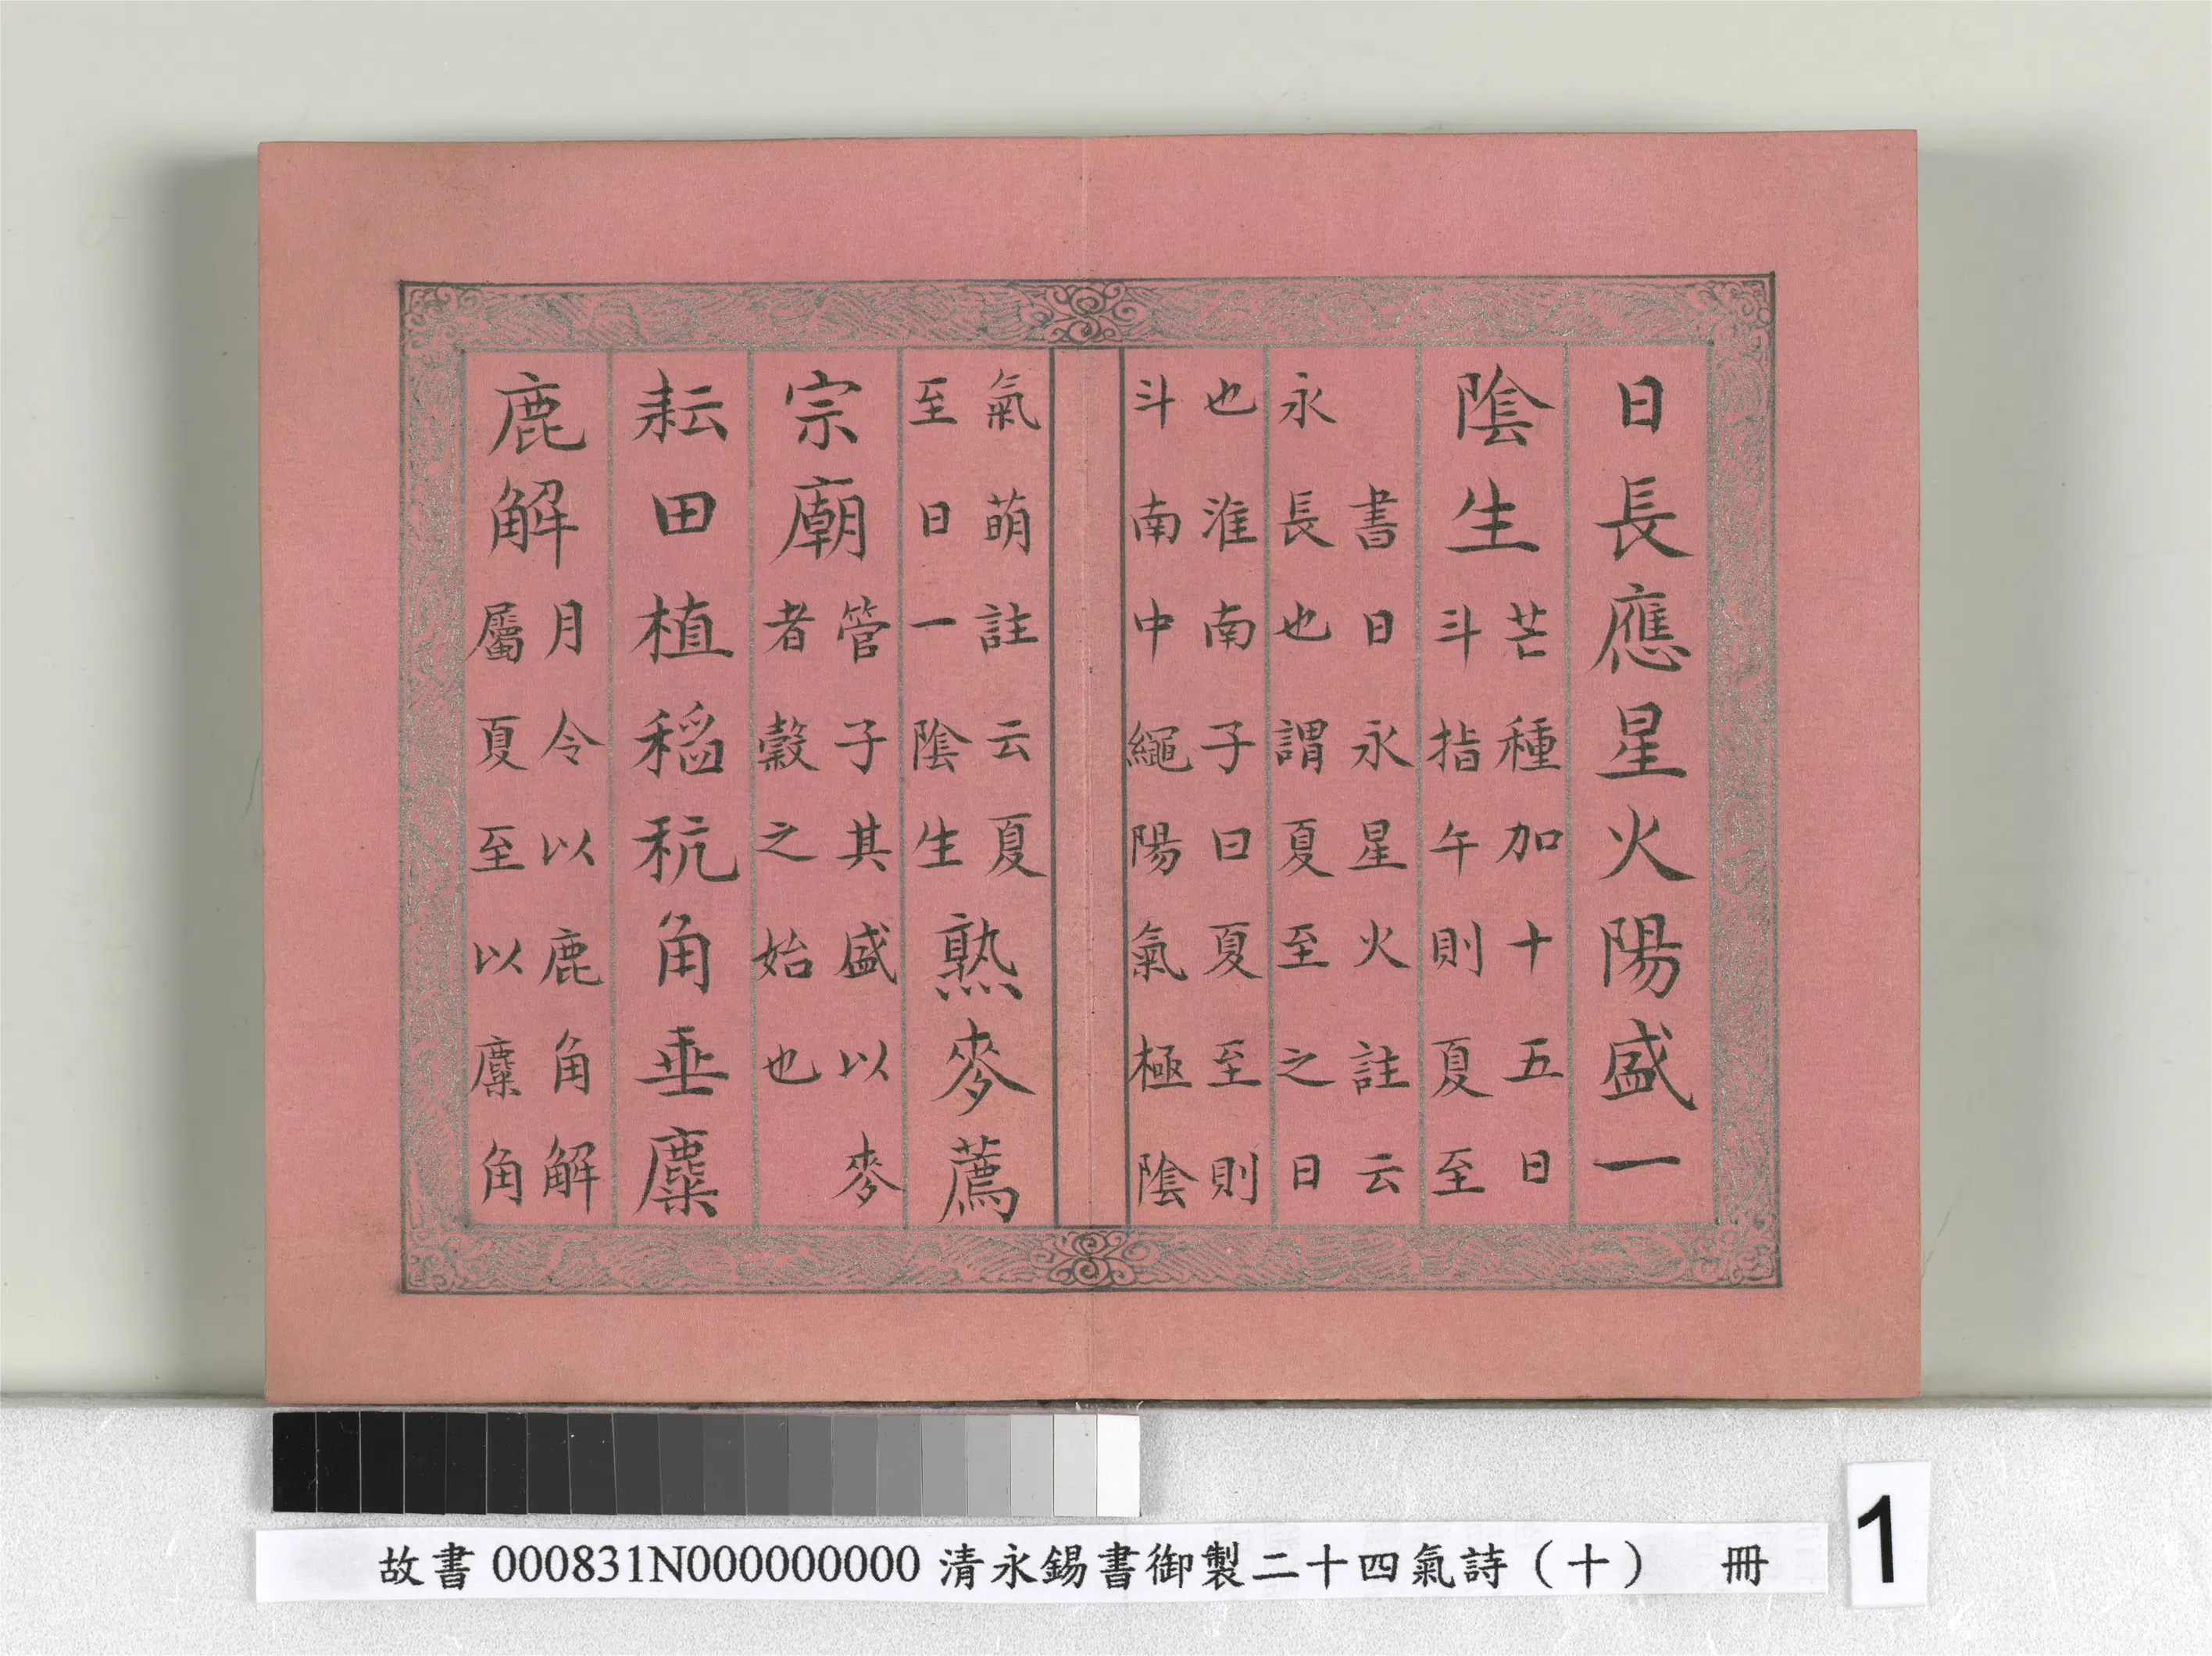 日長應星火陽盛一
陰生
芒種加十五日
斗指午則夏至
書日永星火註云
永長也謂夏至之日
也淮南子曰夏至則
斗南中繩陽氣極陰
氣萌註云夏
至日一陰生
熟麥薦
宗廟
管子其盛以麥
者穀之始也
耘田植稻秔角垂麋
鹿解
月令以鹿角解
屬夏至以麋角
故書000831N000000000清永錫書御製二十四氣詩（十） 冊
1